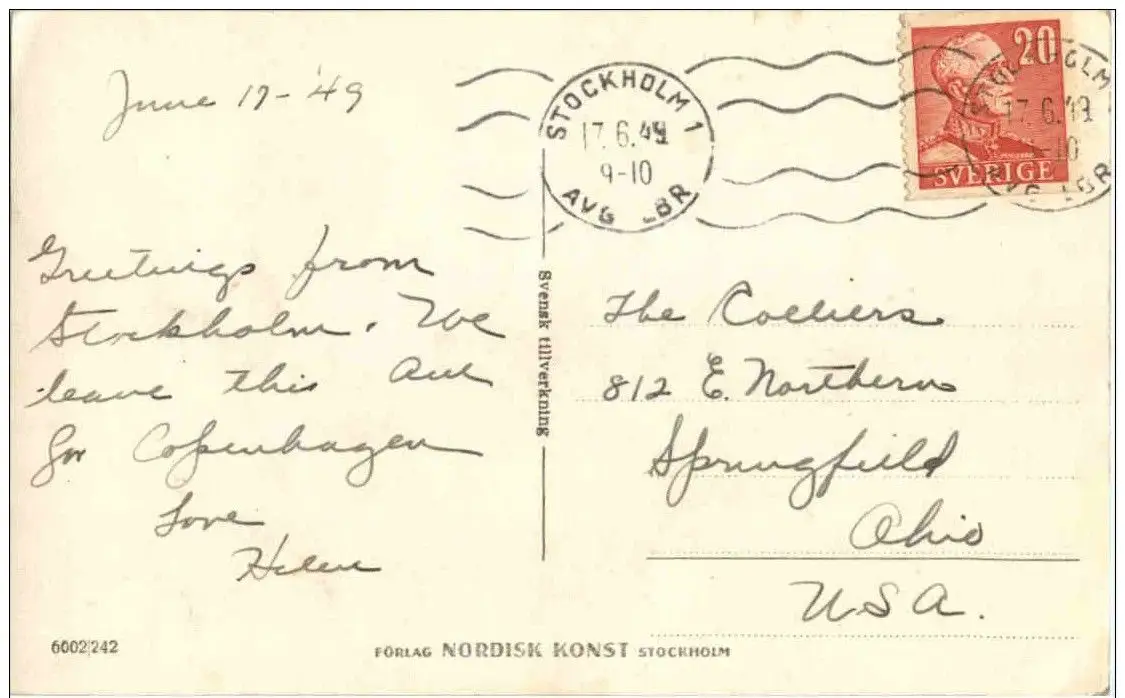 June 17-'49
Greetings from
Stockholm. We
leave this
for Copenhagen
Love
Helen
STOCKHOLM 1
17.6.49
9-10
AVG LBR
20
SVERIGE
STOCKHOLM
17.6.49
-10
AVG LBR
Svensk tillverkning
The Colliers
812 E. Northern
Springfield
Ohio
USA.
6002/242
FÖRLAG NORDISK KONST STOCKHOLM